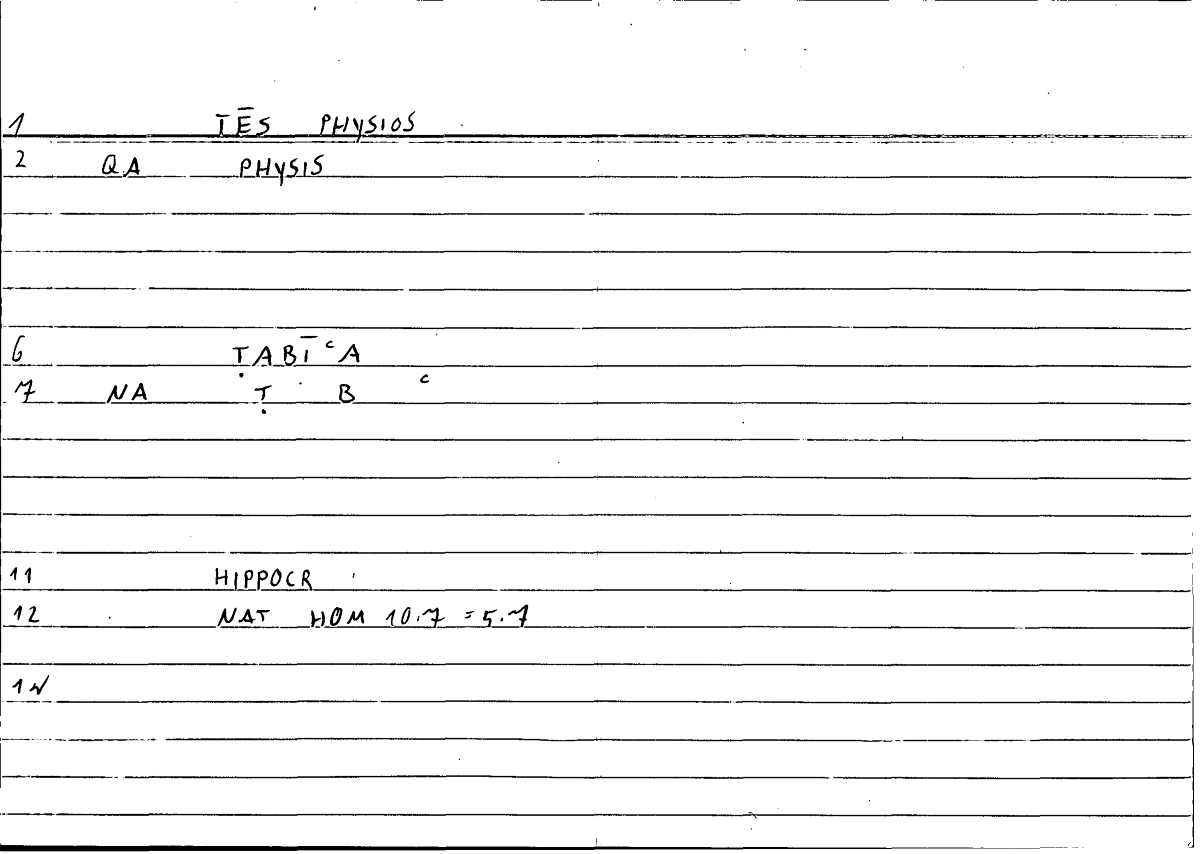 1 TĒS PHYSIOS
2 QA PHYSIS
6 ṬABĪᶜA
7 NA Ṭ B ᶜ
11 HIPPOCR
12 NAT HOM 10.7 = 5.7